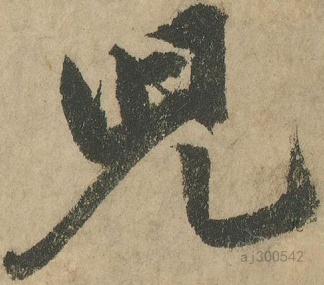 兒
aj300542